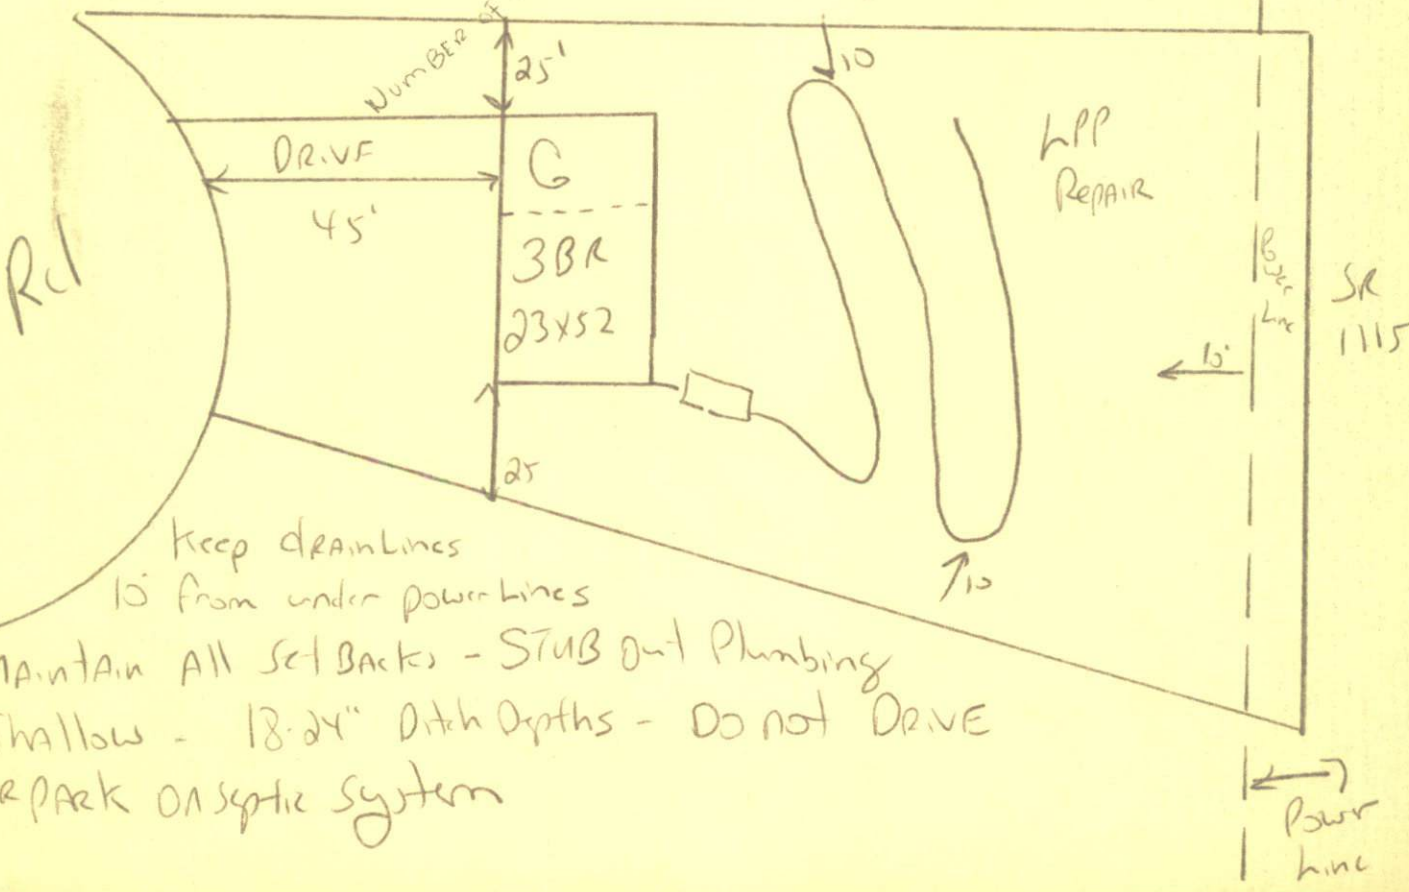 NumBER of
25'
10
DRIVE
45'
G
3BR
23x52
LPP
REPAIR
Rd
Power
Line
SR
1115
10'
25
10
Keep dRAinLines
10' from under powerLines
MAintAin All SetBAcks - STUB out Plumbing
ShAllow - 18-24" Ditch Depths - Do not DRIVE
OR PARK On Septic System
Power
Line